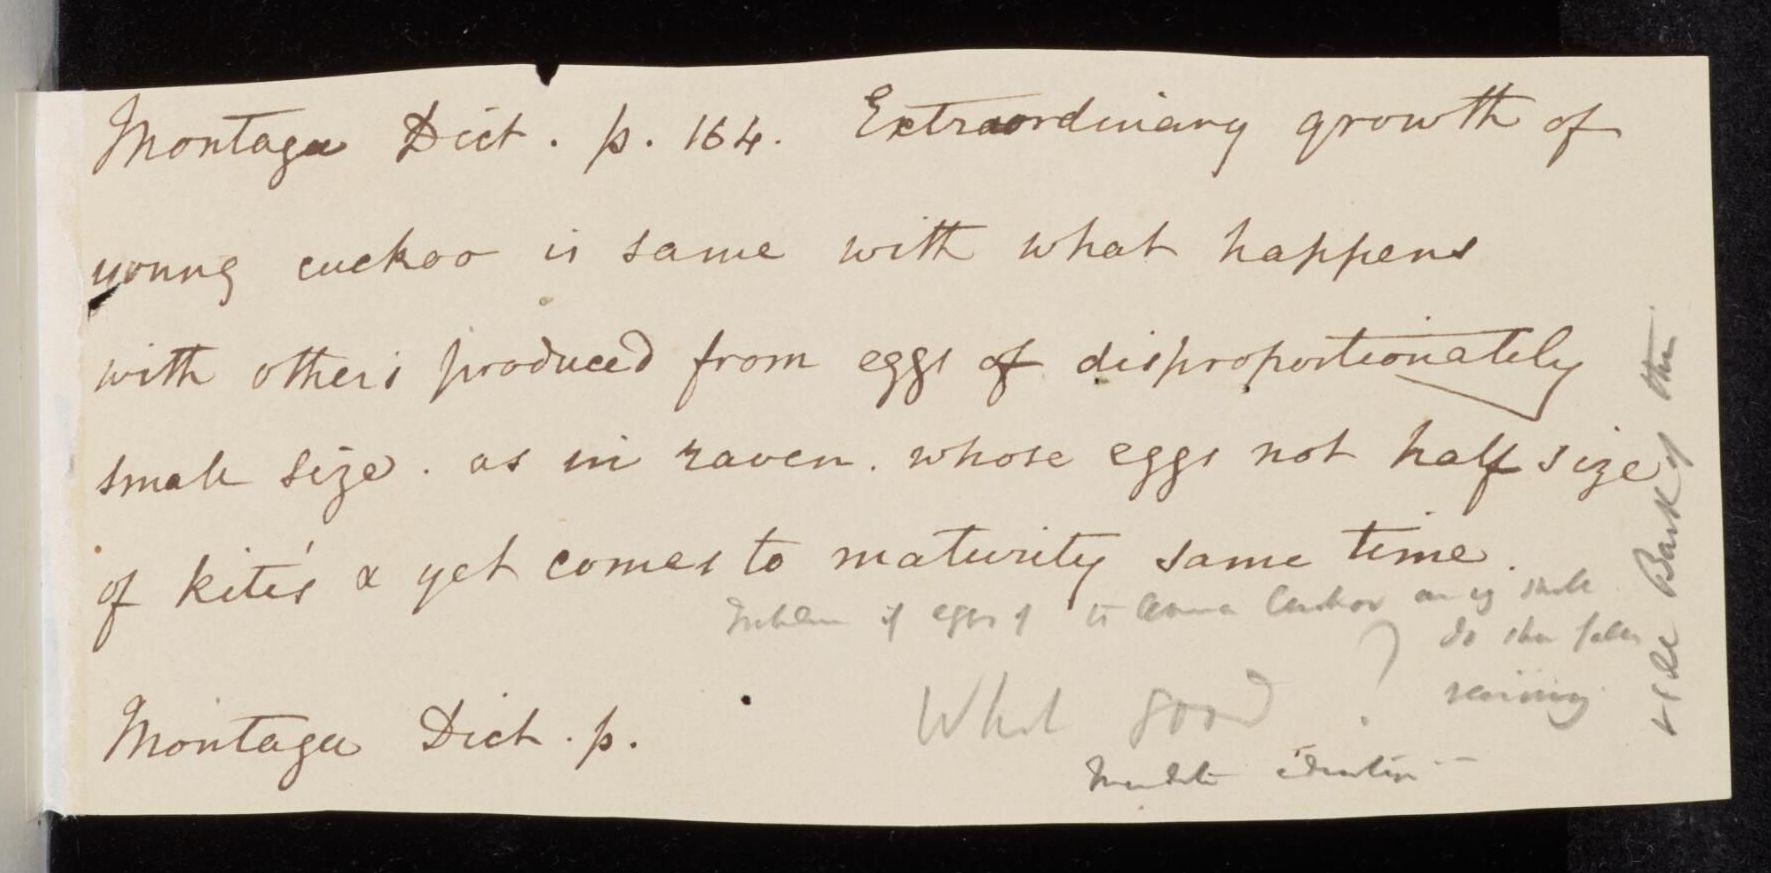 Montagu Dict. p. 164. Extraordinary growth of
young cuckoo is same with what happens
with others produced from eggs of disproportionately
small size. as in raven. whose eggs not half size
of kite's & yet comes to maturity same time.
if eggs of
What good ?
Montagu Dict. p.
Back of this